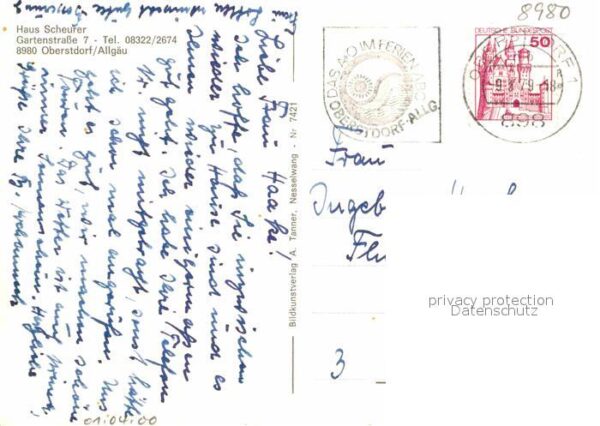 Haus Scheufer
Gartenstraße 7 - Tel. 08322/2674
8980 Oberstdorf/Allgäu
8980
Liebe Frau Haacke!
Ich hoffe, daß Sie inzwischen
wieder zu Hause sind und es
Ihnen wieder einigermaßen
gut geht. Ich habe Ihre Telefon
Nr. nicht mitgebracht, sonst hätte
ich schon mal angerufen. Uns
geht es gut, wir machen schöne
Touren. Das Wetter ist auf
immer Sonnenschein. Herzliche
Grüße Ihre
01:04:00
Bildkunstverlag A. Tanner, Nesselwang - Nr. 7421
DAS A·O IM FERIEN
OBERSTDORF-ALLG.
DEUTSCHE BUNDESPOST
50
9.8.79
898
Frau
Ingeb
Fl
3
privacy protection
Datenschutz